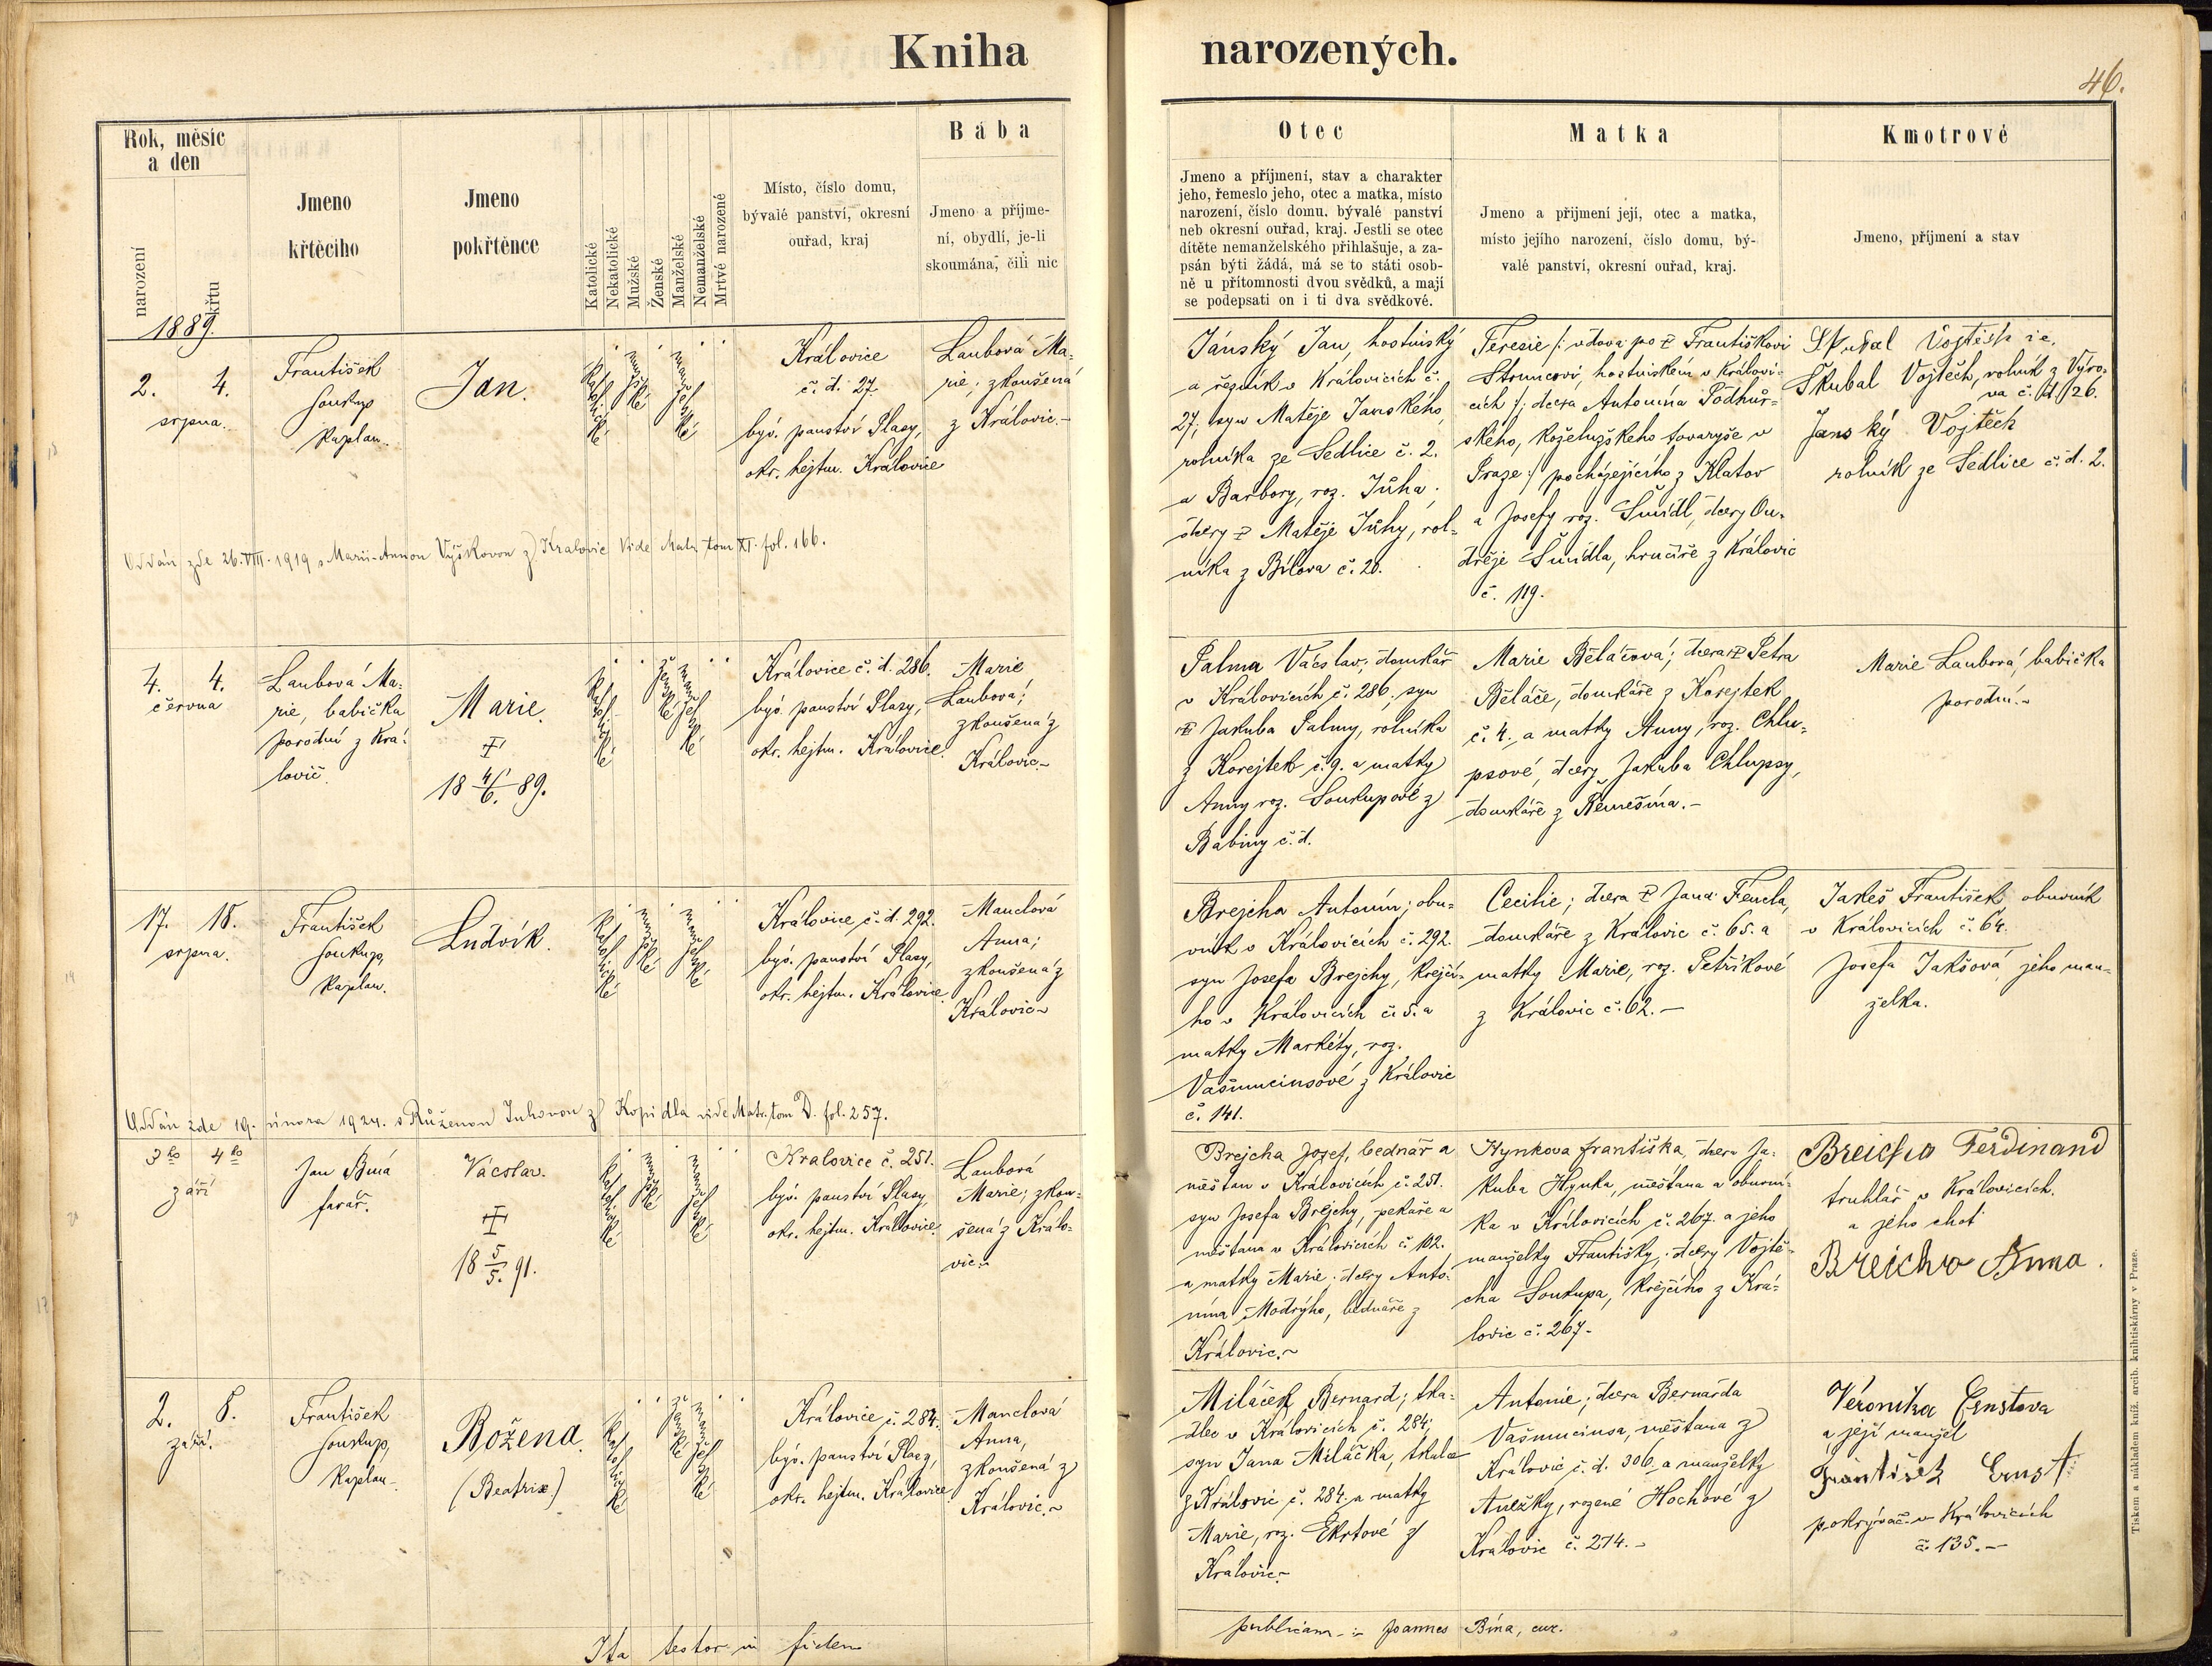 Kniha
narozených.
46.
Rok, měsíc
a den
narození
křtu
Jmeno
křtěcího
Jmeno
pokřtěnce
Katolické
Nekatolické
Mužské
Ženské
Manželské
Nemanželské
Mrtvě narozené
Místo, číslo domu,
bývalé panství, okresní
ouřad, kraj
Bába
Jmeno a příjme-
ní, obydlí, je-li
skoumána, čili nic
Otec
Jmeno a příjmení, stav a charakter
jeho, řemeslo jeho, otec a matka, místo
narození, číslo domu, bývalé panství
neb okresní ouřad, kraj. Jestli se otec
dítěte nemanželského přihlašuje, a za-
psán býti žádá, má se to státi osob-
ně u přítomnosti dvou svědků, a mají
se podepsati on i ti dva svědkové.
Matka
Jmeno a přijmení její, otec a matka,
místo jejího narození, číslo domu, bý-
valé panství, okresní ouřad, kraj.
Kmotrové
Jmeno, příjmení a stav
1889.
2. 4.
srpna.
František
Soukup
Kaplan.
Jan.
Katolické
mužské
manželské
Královice
č. d. 27.
býv. panství Plasy,
okr. hejtm. Královice
Laubová Ma-
rie; zkoušená
z Královic.-
Jánský Jan, hostinský
a řezník v Královicích č.
27; syn Matěje Janského,
rolníka ze Sedlice č. 2.
a Barbory, roz. Jůha;
dcery Matěje Jůhy, rol-
níka z Bílova č. 20.
Teresie /: vdova po Františkovi
Struncovi, hostinském v Královi-
cích :/; dcera Antonína Podhůr-
ského, koželužského tovaryše v
Praze :/ pocházejícího z Klatov
a Josefy roz. Šmídl, dcery On-
dřeje Šmídla, hrnčíře z Královic
č. 119.
Skubal Vojtěch
Škubal Vojtěch, rolník z Výro-
va č. d. 26.
Janský Vojtěch
rolník ze Sedlice č. d. 2.
Oddán zde 26. VIII. 1919 s Marií-Annou Výškovou z Kralovic Vide Matr. tom XI. fol. 166.
4. 4.
června
Laubová Ma-
rie, babička
porodní z Krá-
lovic.
Marie.
18 4/6. 89.
Katolické
ženské
manželské
Královice č. d. 286.
býv. panství Plasy,
okr. hejtm. Královice.
Marie
Laubová;
zkoušená z
Královic.-
Palma Václav; domkář
v Královicích č. 286; syn
Jakuba Palmy, rolníka
z Korejtek č. 9. a matky
Anny roz. Soukupové z
Babiny č. d.
Marie Běláčová; dcera Petra
Běláče, domkáře z Korejtek
č. 4. a matky Anny, roz. Chlu-
psové, dcery Jakuba Chlupsy,
domkáře z Řemešína.-
Marie Laubová, babička
porodní.-
17. 18.
srpna.
František
Soukup,
Kaplan.
Ludvík.
Katolické
mužské
manželské
Královice, č. d. 292.
býv. panství Plasy,
okr. hejtm. Královice.
Manclová
Anna;
zkoušená z
Královic.-
Brejcha Antonín; obu-
vník v Královicích č. 292.
syn Josefa Brejchy, krejčí-
ho v Královicích č. 5. a
matky Markéty, roz.
Vašmucinsové z Královic
č. 141.
Cecilie; dcera Jana Fencla,
domkáře z Královic č. 65. a
matky Marie, roz. Petříkové
z Královic č. 62.-
Jakeš František, obuvník
v Královicích č. 64.
Josefa Jakšová, jeho man-
želka.
Oddán zde 19. února 1924. s Růženou Juhovou z Kopidla vide Matr. tom D. fol. 257.
3ho 4ho
září
Jan Bína
farář.
Václav.
18 5/5. 91.
Katolické
mužské
manželské
Kralovice č. 251.
býv. panství Plasy,
okr. hejtm. Královice.
Laubová
Marie; zkou-
šená z Králo-
vic.-
Brejcha Josef, bednář a
měštan v Královicích č. 251.
syn Josefa Brejchy, pekaře a
měštana v Královicích č. 102.
a matky Marie; dcery Anto-
nína Modrýho, bednáře z
Královic.-
Hynkova františka, dcera Ja-
kuba Hynka, měštana a obuvní-
ka v Královicích č. 267. a jeho
manželky Františky; dcery Vojtě-
cha Soukupa, krejčího z Krá-
lovic č. 267.-
Breicha Ferdinand
truhlář v Královicích.
a jeho choť
Breicha Anna.
2. 8.
září.
František
Soukup,
Kaplan.-
Božena.
(Beatrix)
Katolické
ženské
manželské
Královice č. 284.
býv. panství Plasy,
okr. hejtm. Královice.
Manclová
Anna,
zkoušená z
Královic.-
Miláček Bernard; tka-
dlec v Královicích č. 284;
syn Jana Miláčka, tkalce
z Královic č. 284, a matky
Marie, roz. Ekrtové z
Královic.-
Antonie; dcera Bernarda
Vašmucinsa, měštana z
Královic č. d. 306. a manželky
Anežky, rozené Hochové z
Královic č. 274.-
Veronika Ernstova
a její manžel
František Ernst
pokrývač v Královicích
č. 135.-
Ita testor in fidem publicam:- Joannes Bína, cur.
Tiskem a nákladem kníž. arcib. knihtiskárny v Praze.